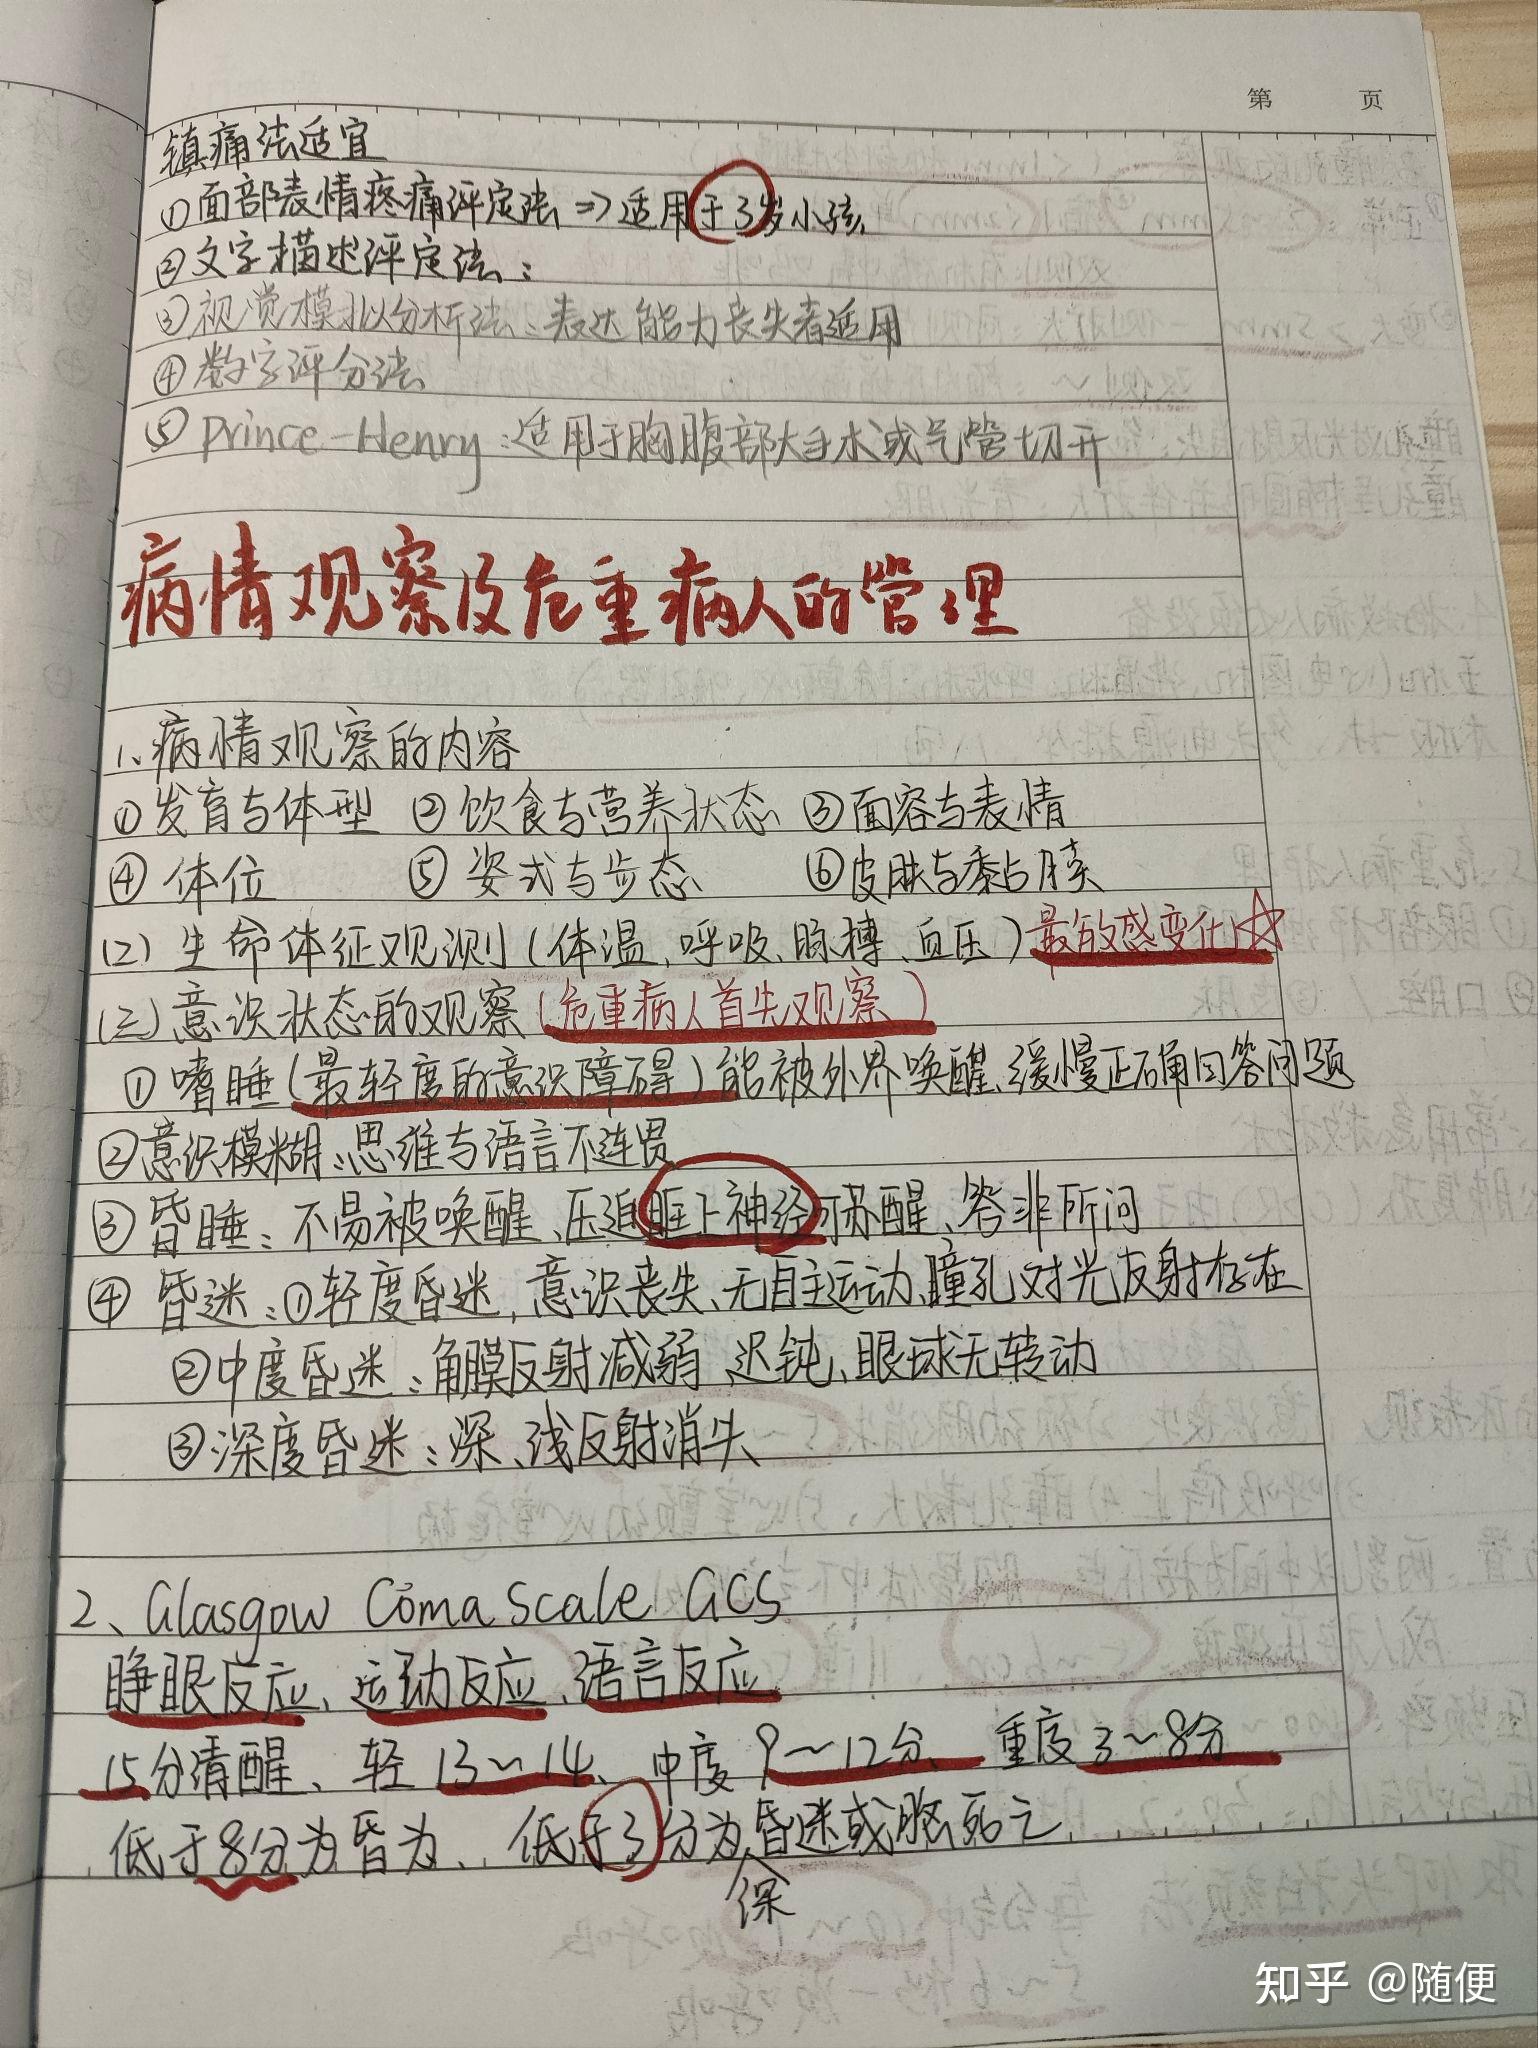 第 页
镇痛法适宜
①面部表情疼痛评定法⇒适用于3岁小孩
②文字描述评定法:
③视觉模拟分析法:表达能力丧失者适用
④数字评分法
⑤Prince-Henry:适用于胸腹部大手术或气管切开
病情观察及危重病人的管理
1、病情观察的内容
①发育与体型 ②饮食与营养状态 ③面容与表情
④体位 ⑤姿式与步态 ⑥皮肤与黏膜
(2)生命体征观测(体温、呼吸、脉搏、血压)最敏感变化☆
(三)意识状态的观察(危重病人首先观察)
①嗜睡(最轻度的意识障碍)能被外界唤醒、缓慢正确回答问题
②意识模糊:思维与语言不连贯
③昏睡:不易被唤醒、压迫眶上神经可苏醒、答非所问
④昏迷:①轻度昏迷,意识丧失、无自主运动、瞳孔对光反射存在
②中度昏迷:角膜反射减弱、迟钝、眼球无转动
③深度昏迷:深、浅反射消失
2、Glasgow Coma Scale GCS
睁眼反应、运动反应、语言反应
15分清醒、轻13~14、中度9~12分、重度3~8分
低于8分为昏为、低于3分为深昏迷或脑死亡
知乎 @随便